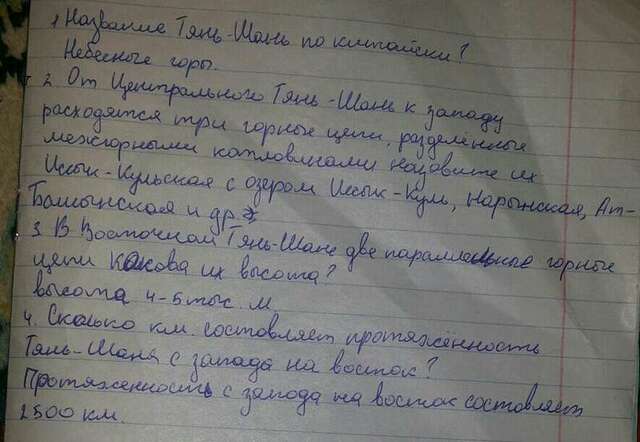 1 Название Тянь-Шань по китайски?
Небесные горы.
2. От Центрального Тянь-Шань к западу
расходятся три горные цепи, разделённые
межгорными котловинами назовите их
Иссык-Кульская с озером Иссык-Куль, Нарынская, Ат-
Башынская и др.
3. В Восточном Тянь-Шане две параллельные горные
цепи Какова их высота?
высота 4-5 тыс. м
4. Сколько км. составляет протяжённость
Тянь-Шаня с запада на восток?
Протяженность с запада на восток составляет
2500 км.